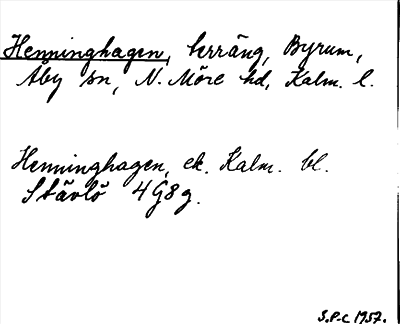 Henninghagen, terräng, Byrum,
Åby sn, N. Möre hd, Kalm. l.
Henninghagen, ek. Kalm. bl.
Stävlö 4G8g.
S.P-c 1957.